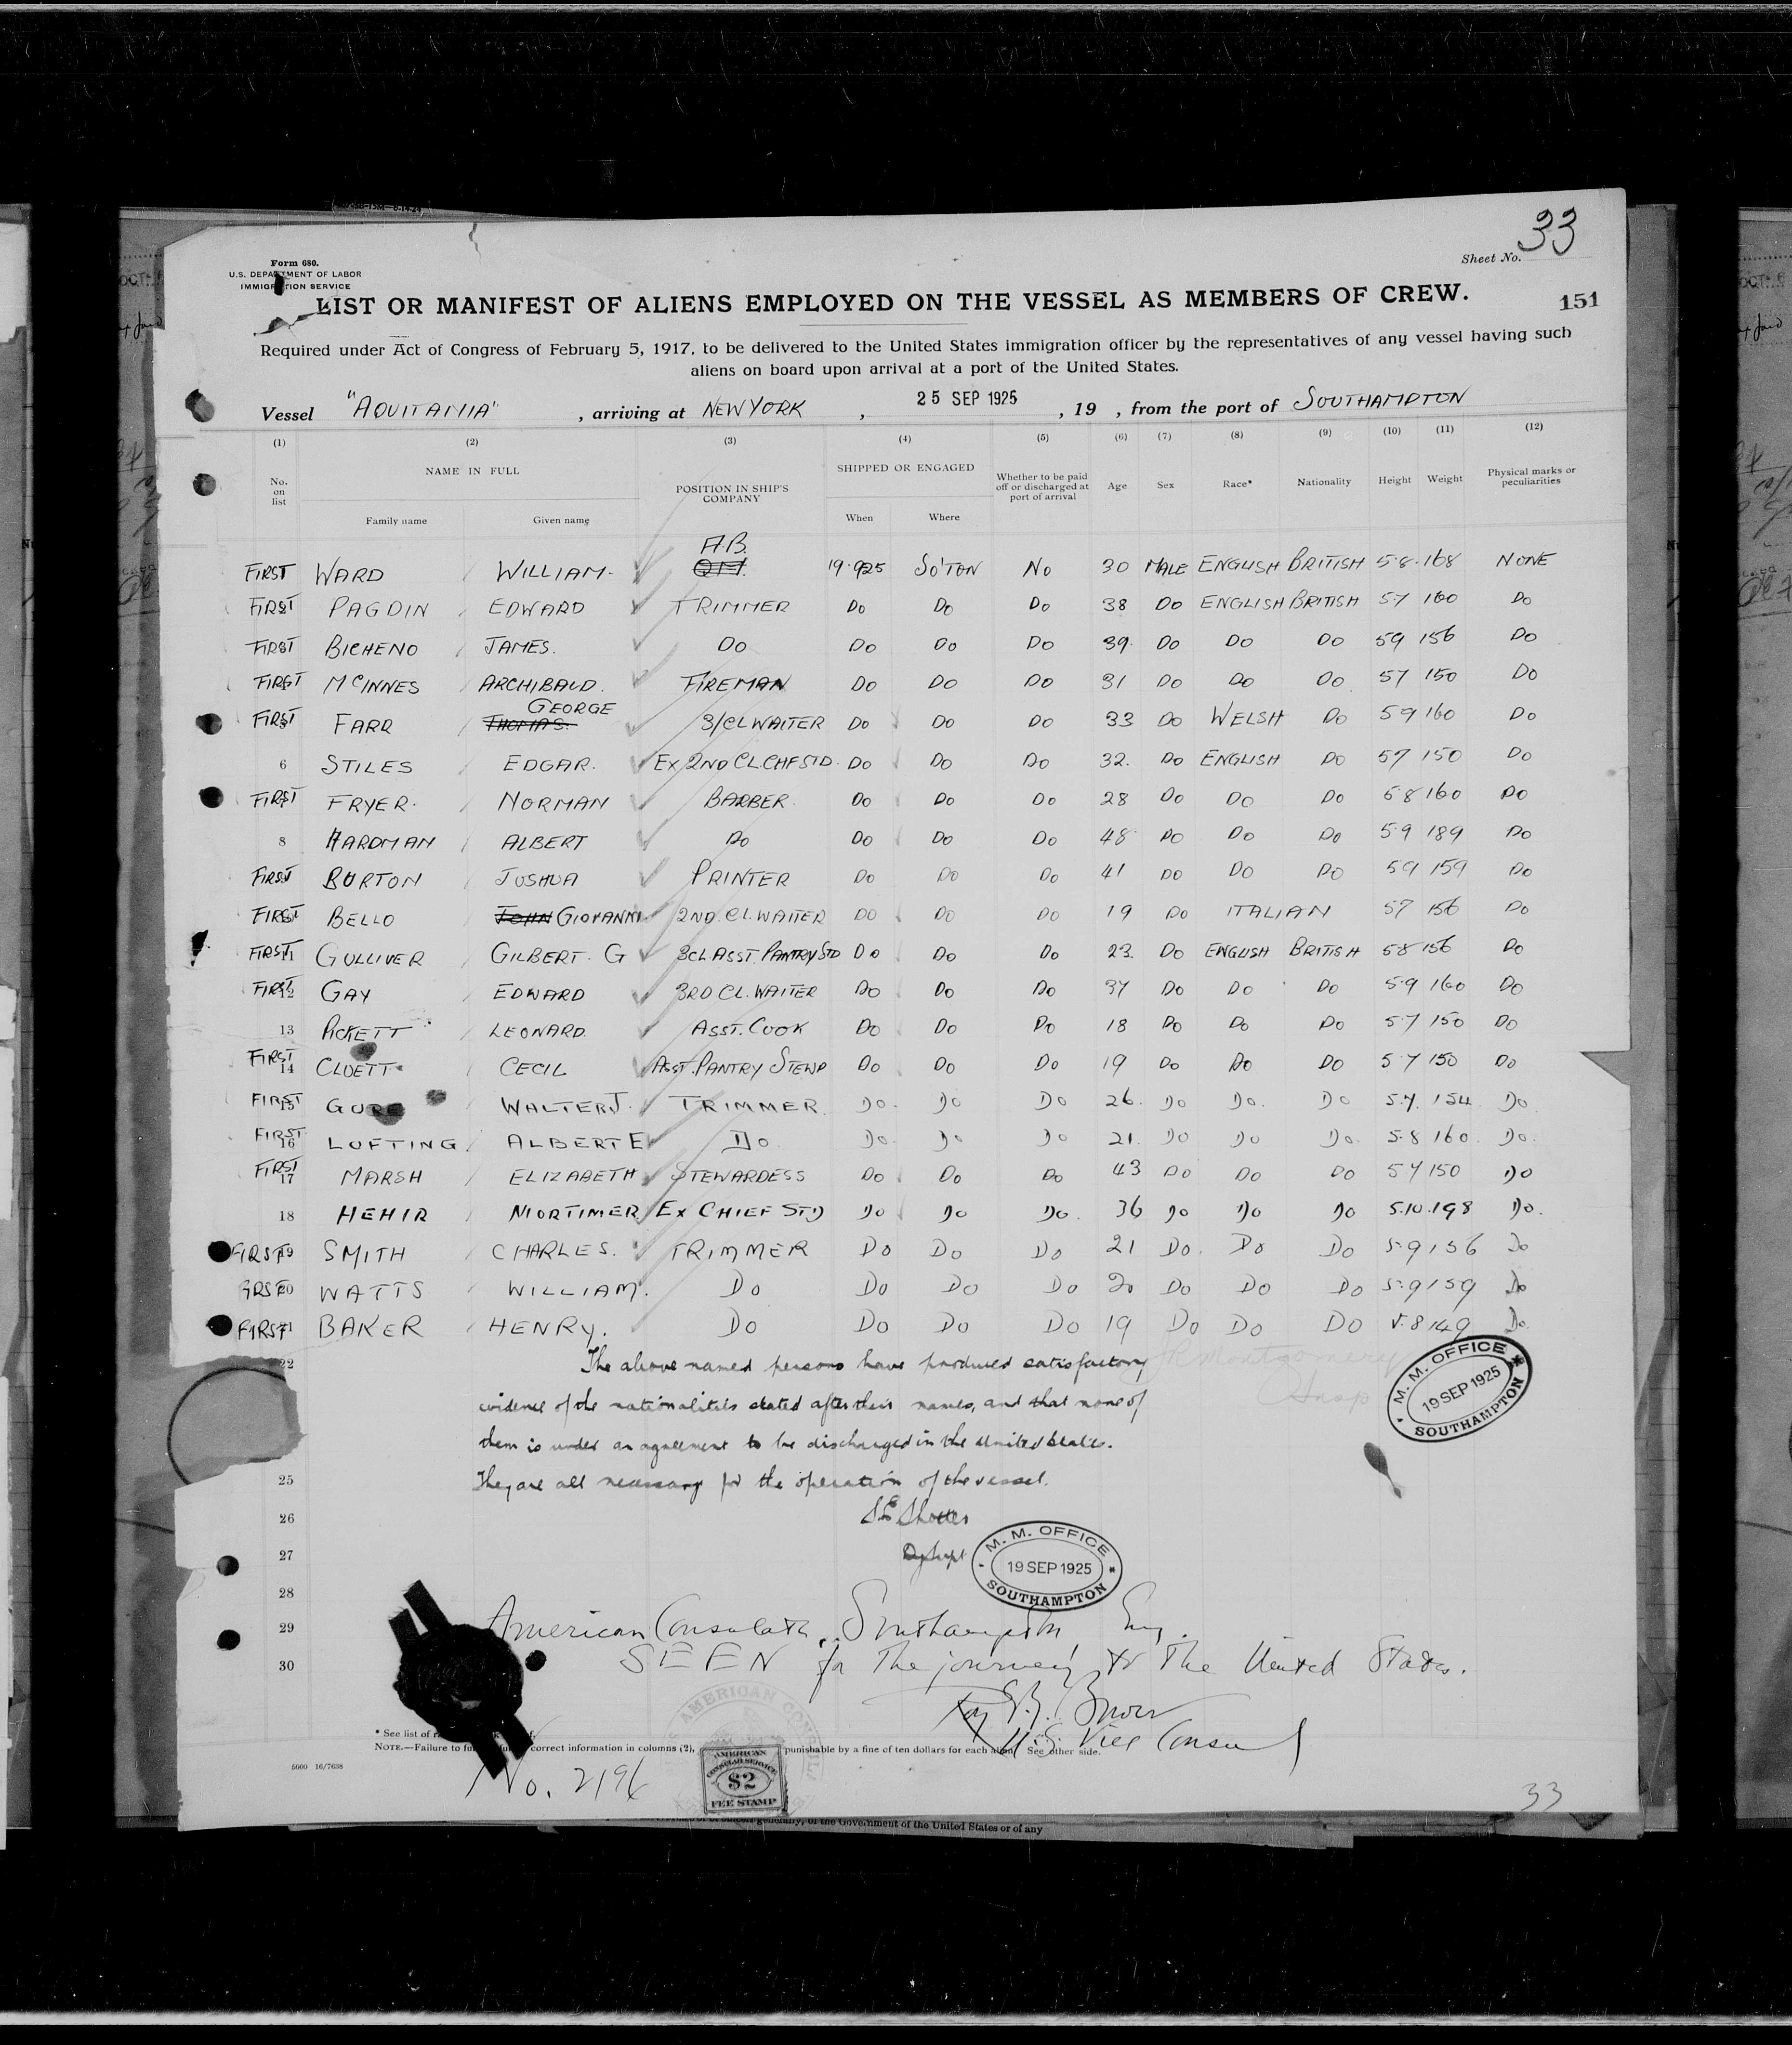 33
Form 680.
U.S. DEPARTMENT OF LABOR
IMMIGRATION SERVICE
Sheet No.
LIST OR MANIFEST OF ALIENS EMPLOYED ON THE VESSEL AS MEMBERS OF CREW.
151
Required under Act of Congress of February 5, 1917, to be delivered to the United States immigration officer by the representatives of any vessel having such
aliens on board upon arrival at a port of the United States.
Vessel "AQUITANIA" , arriving at NEW YORK , 25 SEP 1925 , 19 , from the port of SOUTHAMPTON
(1) (2) (3) (4) (5) (6) (7) (8) (9) (10) (11) (12)
No. on list NAME IN FULL POSITION IN SHIP'S COMPANY SHIPPED OR ENGAGED Whether to be paid off or discharged at port of arrival Age Sex Race* Nationality Height Weight Physical marks or peculiarities
Family name Given name When Where
A.B.
FIRST WARD WILLIAM. Q.M. 19.9.25 SO'TON NO 30 MALE ENGLISH BRITISH 5.8. 168 NONE
FIRST PAGDIN EDWARD TRIMMER DO DO DO 38 DO ENGLISH BRITISH 5.7 160 DO
FIRST BICHENO JAMES. DO DO DO DO 39. DO DO DO 5 9 156 DO
FIRST McINNES ARCHIBALD. FIREMAN DO DO DO 31 DO DO DO 5 7 150 DO
GEORGE
FIRST FARR THOMAS. 3/CL WAITER DO DO DO 33 DO WELSH DO 5 9 160 DO
6 STILES EDGAR. EX 2ND CL CHF STD. DO DO DO 32. DO ENGLISH DO 5 7 150 DO
FIRST FRYER. NORMAN BARBER. DO DO DO 28 DO DO DO 5 8 160 DO
8 HARDMAN ALBERT DO DO DO DO 48 DO DO DO 5.9 189 DO
FIRST BURTON JOSHUA PRINTER DO DO DO 41 DO DO DO 5 9 159 DO
FIRST BELLO JOHN GIOVANNI. 2ND. CL. WAITER DO DO DO 19 DO ITALIAN 5 7 156 DO
FIRST 11 GULLIVER GILBERT. G 3CL. ASST. PANTRY STD DO DO DO 23. DO ENGLISH BRITISH 5 8 156 DO
FIRST 12 GAY EDWARD 3RD CL. WAITER DO DO DO 37 DO DO DO 5.9 160 DO
13 PICKETT LEONARD. ASST. COOK DO DO DO 18 DO DO DO 5.7 150 DO
FIRST 14 CLUETT CECIL ASST. PANTRY STEWD DO DO DO 19 DO DO DO 5.7 150 DO
FIRST 15 GORE WALTER J. TRIMMER. DO. DO DO 26. DO DO. DO 5.7. 154 DO
FIRST 16 LUFTING. ALBERT E DO DO. DO DO 21. DO DO DO. 5.8 160. DO.
FIRST 17 MARSH ELIZABETH STEWARDESS DO DO DO 43 DO DO DO 5 4 150 DO
18 HEHIR MORTIMER EX CHIEF STD DO DO DO. 36 DO DO DO 5.10. 198 DO.
FIRST 19 SMITH CHARLES. TRIMMER DO DO DO 21 DO. DO DO 5.9 156 DO
FIRST 20 WATTS WILLIAM. DO DO DO DO 20 DO DO DO 5.9 159 DO
FIRST 21 BAKER HENRY. DO DO DO DO 19 DO DO DO 5.8 149 DO.
22 The above named persons have produced satisfactory Montgomery
Insp
evidence of the nationalities stated after their names, and that none of
them is under an agreement to be discharged in the United States.
25 They are all necessary for the operation of the vessel.
M. M. OFFICE
19 SEP 1925
SOUTHAMPTON
26
27
M. M. OFFICE
19 SEP 1925
SOUTHAMPTON
28
29 American Consulate, Southampton, Eng.
30 SEEN for the journey to the United States.
U.S. Vice Consul
AMERICAN CONSUL
* See list of
NOTE.—Failure to correct information in columns (2), punishable by a fine of ten dollars for each alien. See other side.
5660 16/7638
No. 2196
AMERICAN
CONSULAR SERVICE
$2
FEE STAMP
33
generally, of the Government of the United States or of any